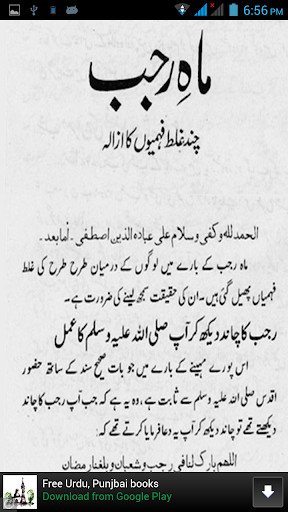 6:56 PM
ماہِ رجب
چند غلط فہمیوں کا ازالہ
الحمد للہ و کفی و سلام علی عبادہ الذین اصطفی - اما بعد -
ماہ رجب کے بارے میں لوگوں کے درمیان طرح طرح کی غلط
فہمیاں پھیل گئی ہیں۔ ان کی حقیقت سمجھ لینے کی ضرورت ہے۔
رجب کا چاند دیکھ کر آپ صلی اللہ علیہ وسلم کا عمل
اس پورے مہینے کے بارے میں جو بات صحیح سند کے ساتھ حضور
اقدس صلی اللہ علیہ وسلم سے ثابت ہے، وہ یہ ہے کہ جب آپ رجب کا چاند
دیکھتے تھے تو چاند دیکھ کر آپ یہ دعا فرمایا کرتے تھے کہ:
اللھم بارک لنا فی رجب و شعبان و بلغنا رمضان
Free Urdu, Punjbai books
Download from Google Play